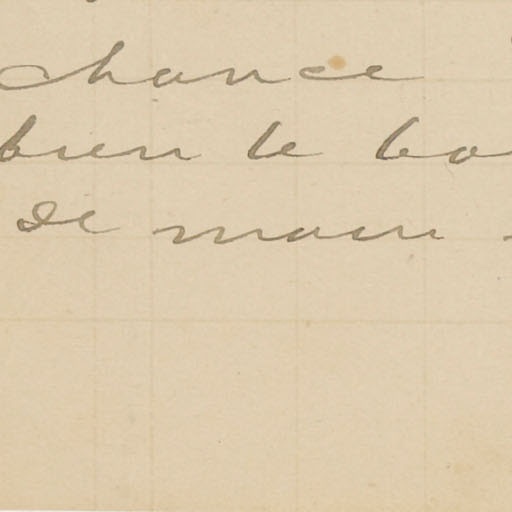 chance
bien le bo
de main